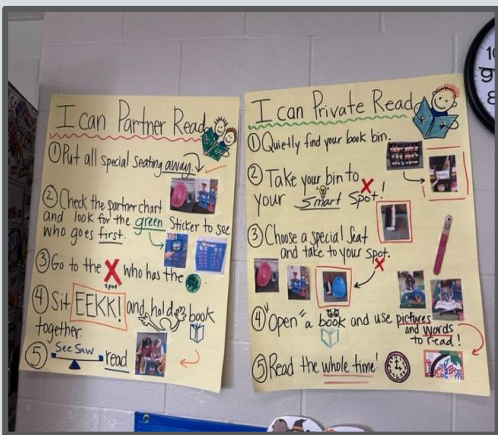 I can Partner Read
① Put all special seating away.
② Check the partner chart
and look for the green sticker to see
who goes first.
③ Go to the X who has the
spot
④ Sit EEKK! and hold book
together
⑤ See Saw read
I can Private Read
① Quietly find your book bin.
② Take your bin to
your Smart Spot!
③ Choose a special seat
and take to your spot.
④ "Open" a book and use pictures
and words
to read!
⑤ Read the whole time!